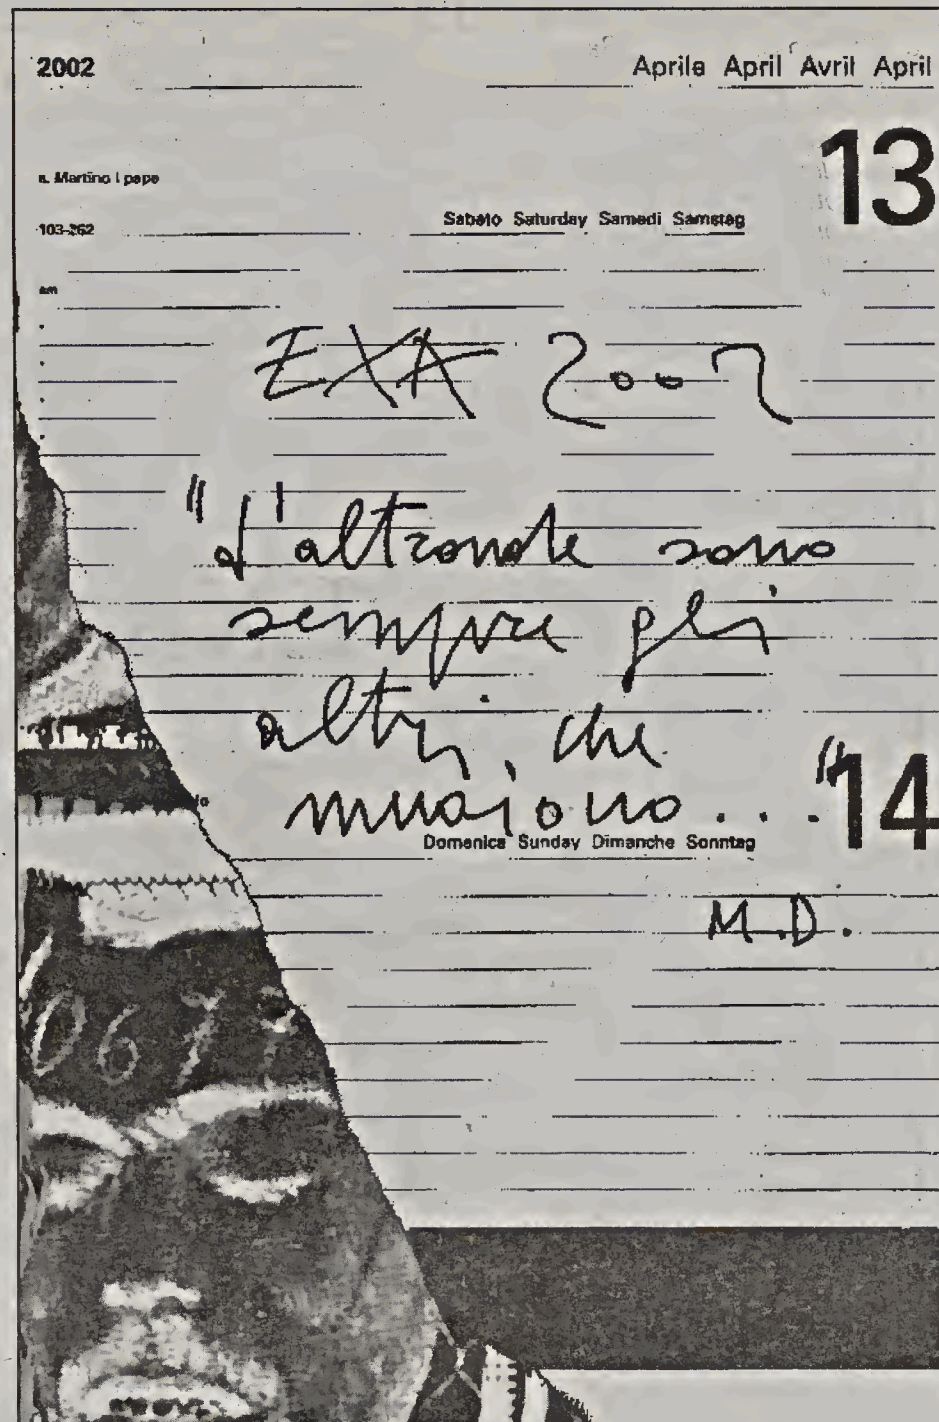 2002
Aprile April Avril April
13
s. Martino I papa
103-262
Sabato Saturday Samedi Samstag
am
EXA 2002
"d'altronde sono
sempre gli
altri che
muoiono...."
14
Domenica Sunday Dimanche Sonntag
M.D.
067